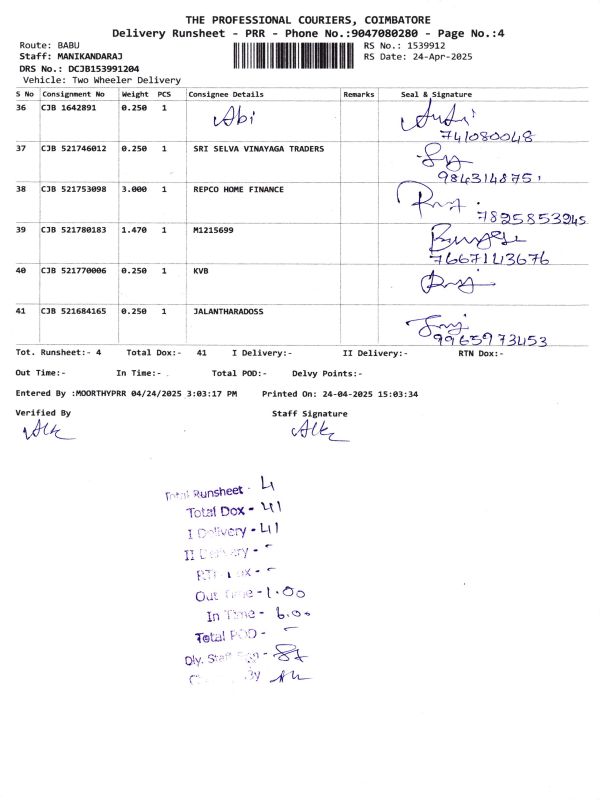 THE PROFESSIONAL COURIERS, COIMBATORE
Delivery Runsheet - PRR - Phone No.:9047080280 - Page No.:4
Route: BABU
RS No.: 1539912
Staff: MANIKANDARAJ
RS Date: 24-Apr-2025
DRS No.: DCJB153991204
Vehicle: Two Wheeler Delivery
S No Consignment No Weight PCS Consignee Details Remarks Seal & Signature
36 CJB 1642891 0.250 1 Abi
741080048
37 CJB 521746012 0.250 1 SRI SELVA VINAYAGA TRADERS
984314875
38 CJB 521753098 3.000 1 REPCO HOME FINANCE
7825853245
39 CJB 521780183 1.470 1 M1215699
7667143676
40 CJB 521770006 0.250 1 KVB
41 CJB 521684165 0.250 1 JALANTHARADOSS
9965973453
Tot. Runsheet:- 4 Total Dox:- 41 I Delivery:- II Delivery:- RTN Dox:-
Out Time:- In Time:- Total POD:- Delvy Points:-
Entered By :MOORTHYPRR 04/24/2025 3:03:17 PM Printed On: 24-04-2025 15:03:34
Verified By Staff Signature
Total Runsheet - 4
Total Dox - 41
I Delivery - 41
II Delivery - -
Out Time - 1.00
In Time - 6.00
Total POD - -
Dly. Staff
By